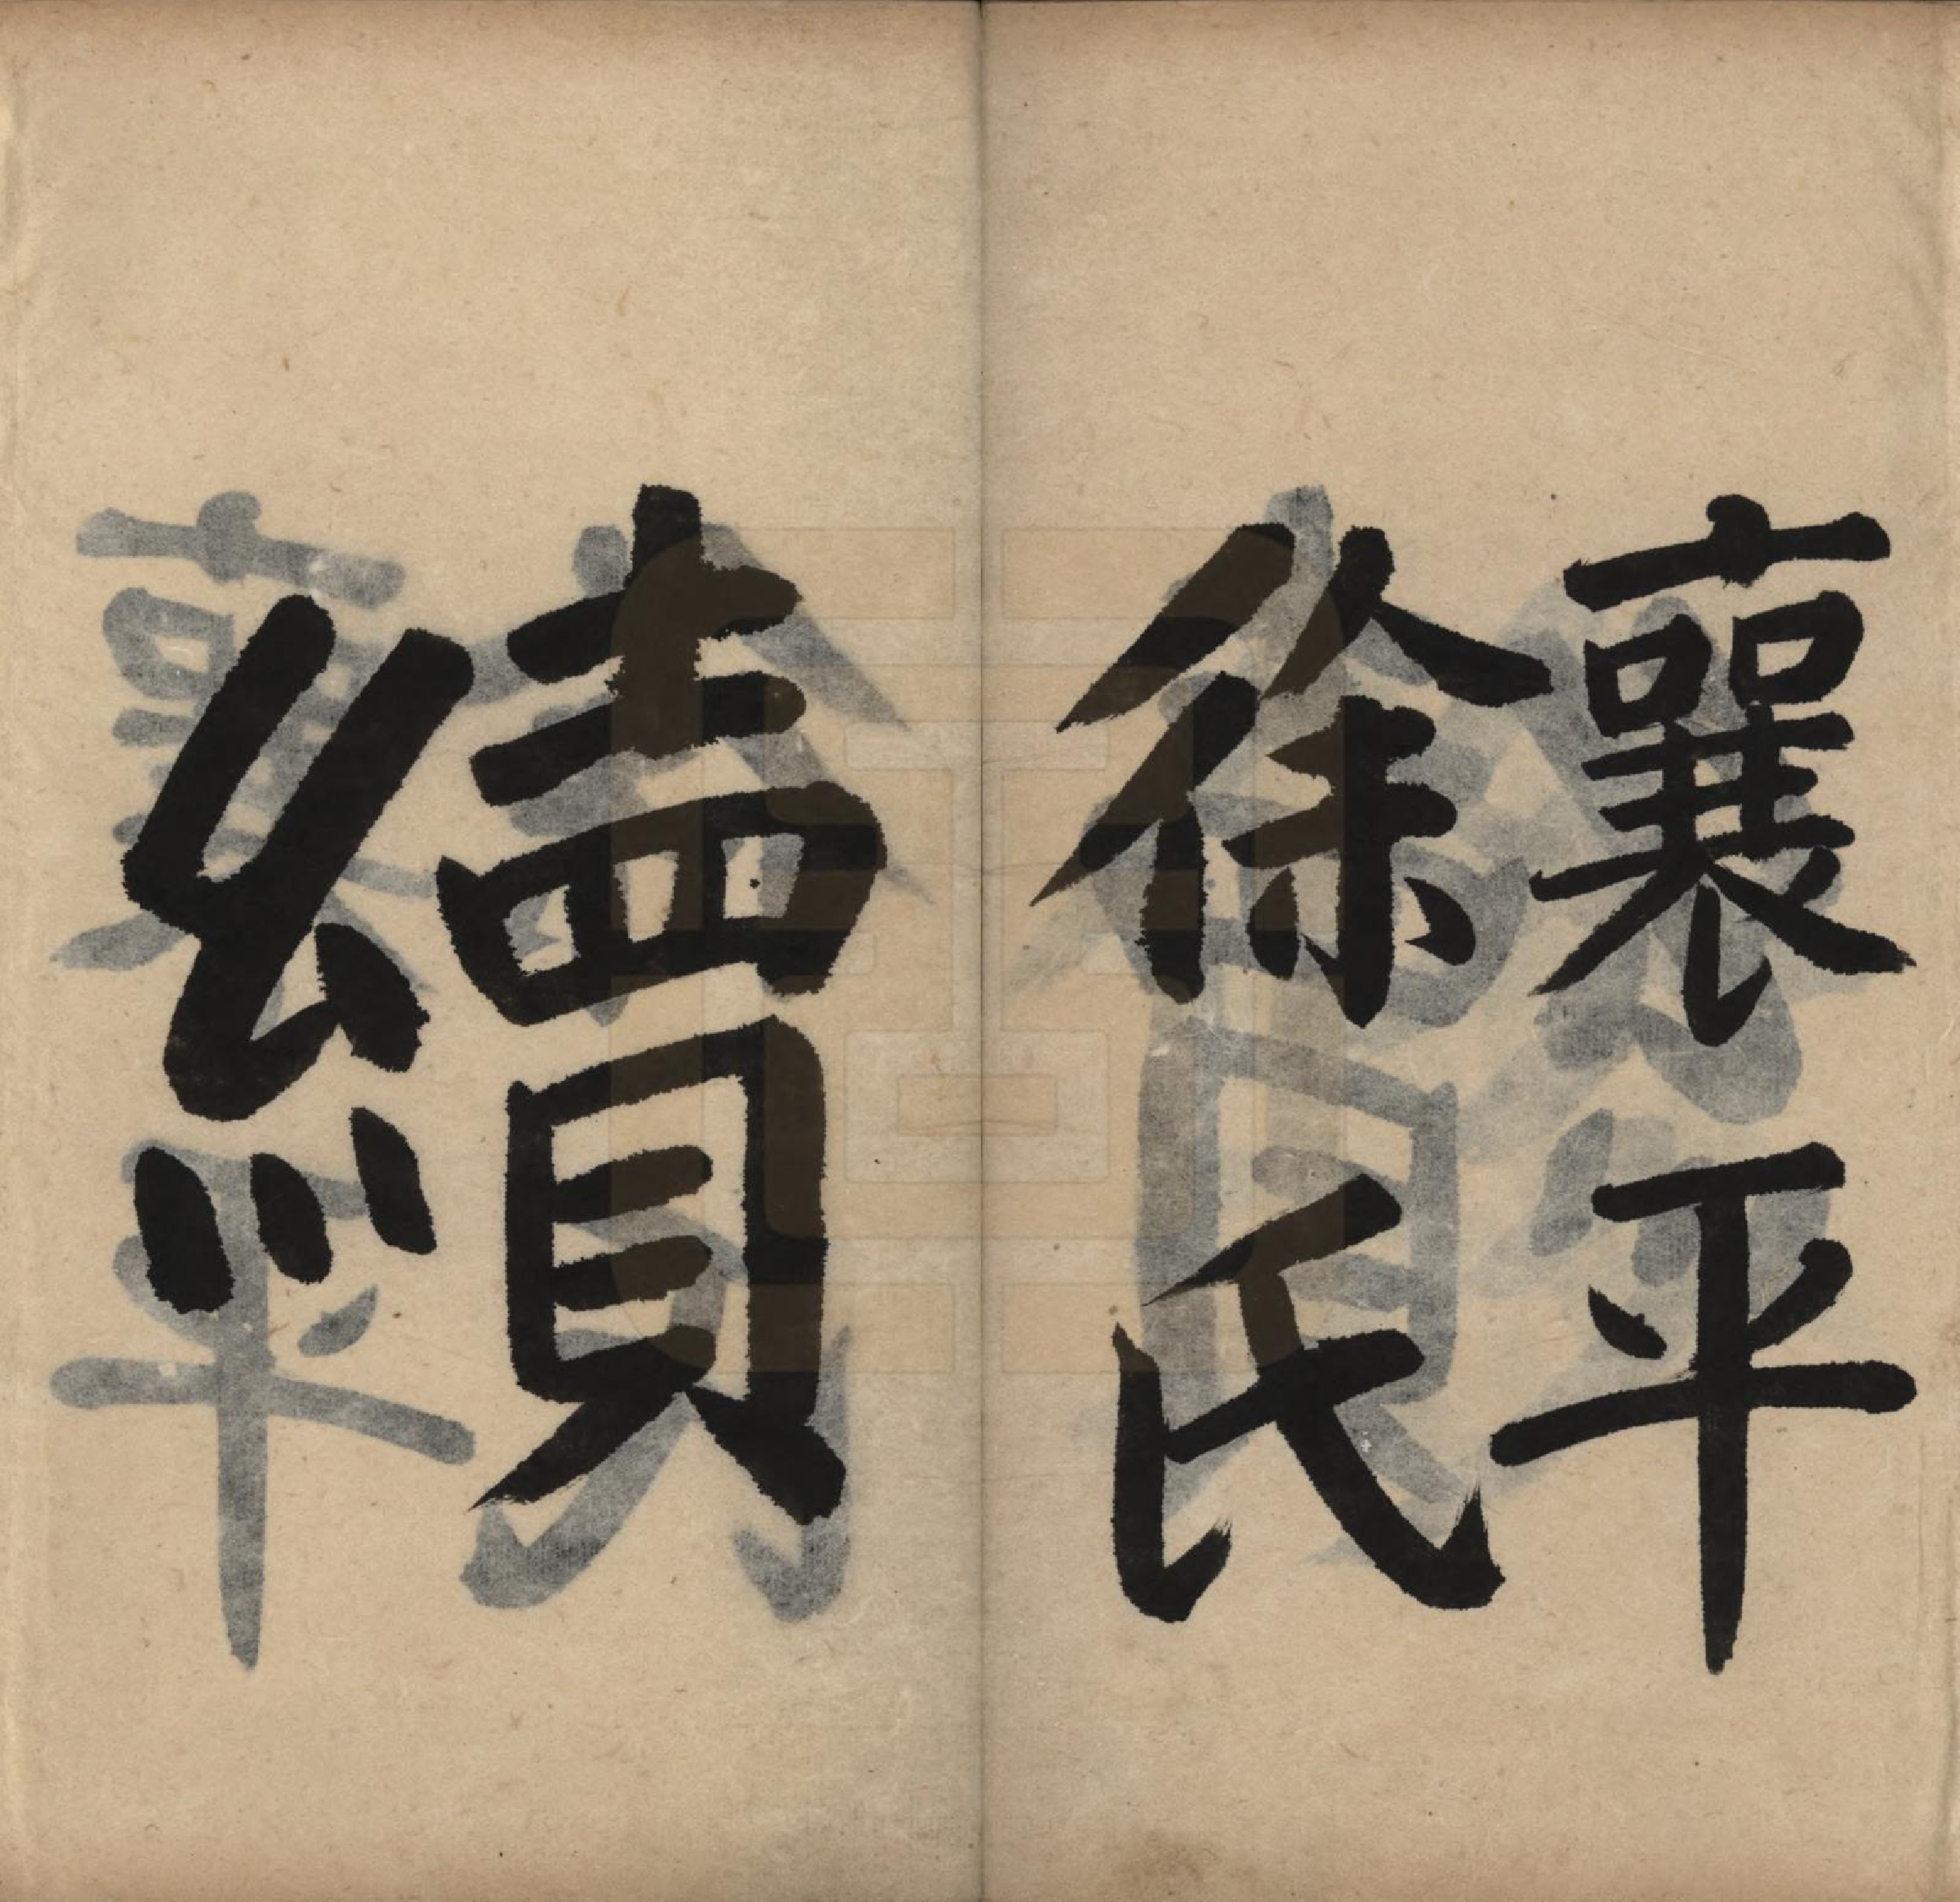 襄平
徐氏
續